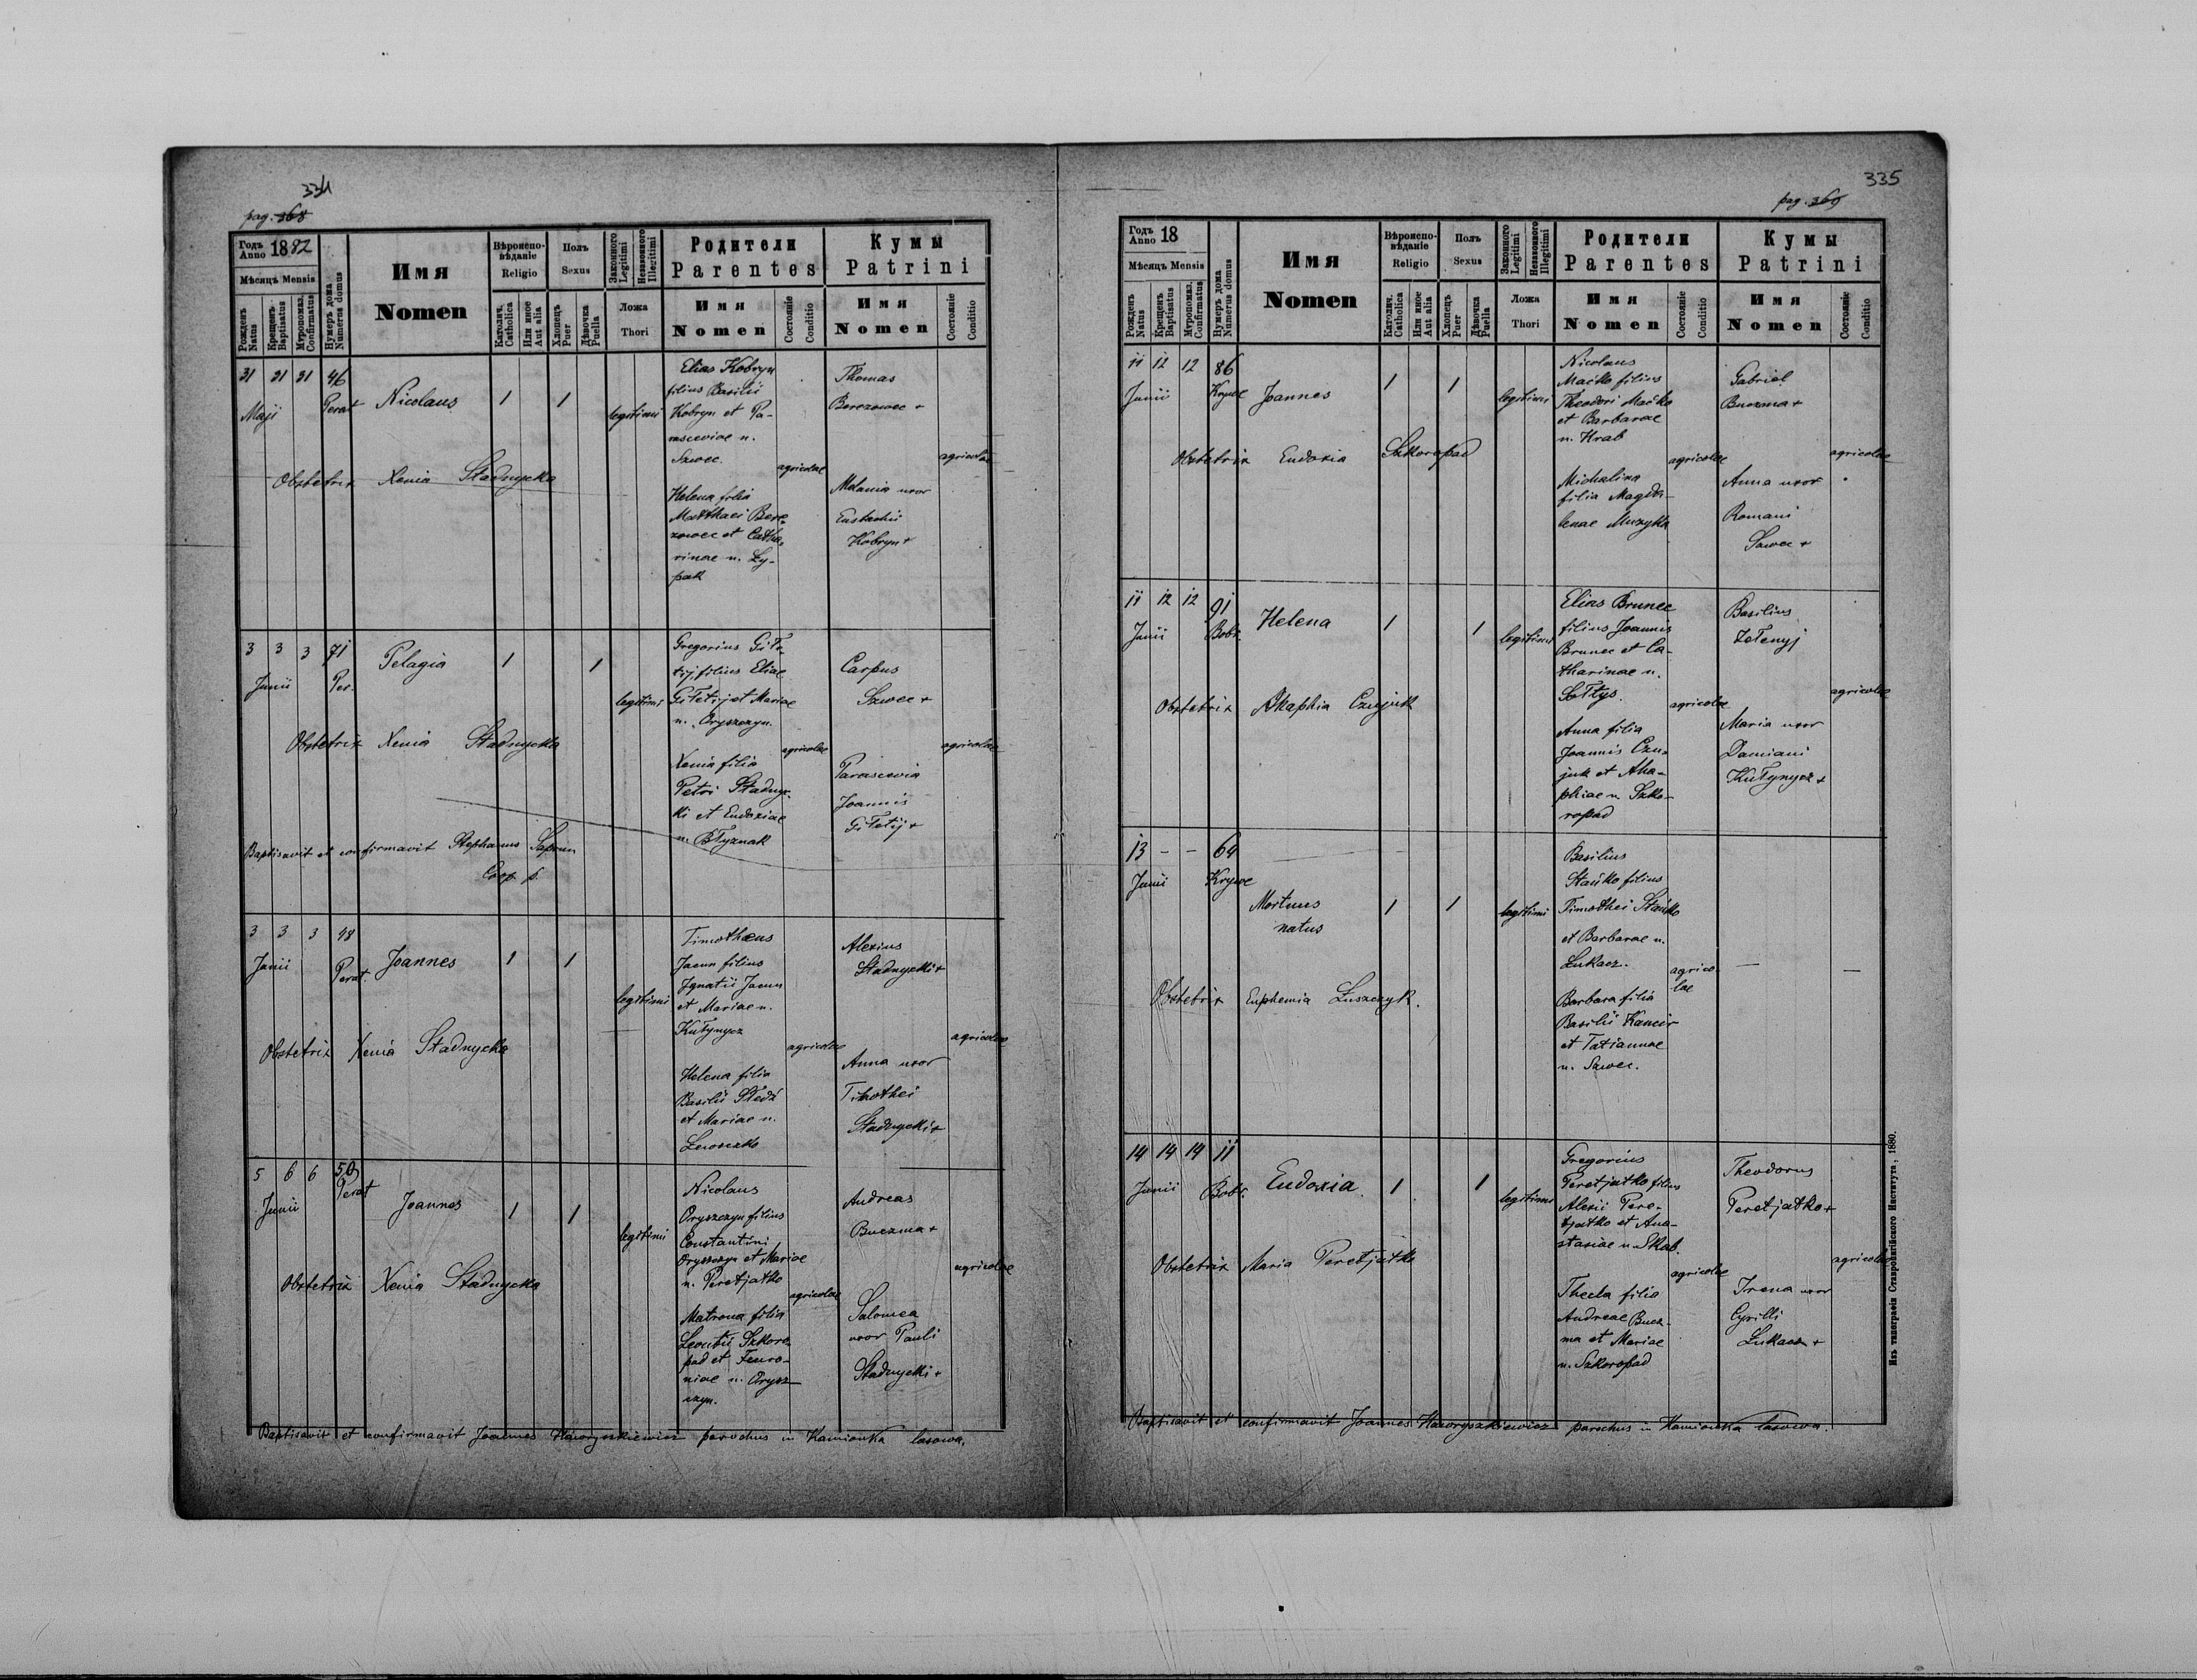 334
pag. 368
Годъ Anno 1882
Мѣсяцъ Mensis
Рожденъ Natus
Крещенъ Baptisatus
Мѵропомаз. Confirmatus
Нумеръ дома Numerus domus
Имя
Nomen
Вѣроисповѣданіе
Religio
Католич. Catholica
Или иное Aut alia
Полъ
Sexus
Хлопецъ Puer
Дѣвочка Puella
Законного Legitimi
Незаконного Illegitimi
Ложа
Thori
Родители
Parentes
Имя
Nomen
Состояніе
Conditio
Кумы
Patrini
Имя
Nomen
Состояніе
Conditio
31 31 31 46
Maji Perat
Nicolaus 1 1
legitimi
Elias Kobryn
filius Basilii
Kobryn et Pa-
rasceviae n.
Szwec.
agricolae
Helena filia
Matthaei Bere-
zowec et Catha-
rinae n. Ły-
pak
Thomas
Berezowec +
agricolae
Melania uxor
Eustachii
Kobryn +
Obstetrix Xenia Stadnycka
3 3 3 71
Junii Per.
Pelagia 1 1
legitimi
Gregorius Gi
filius Eliae
et Mariae
n. Oryszczyn.
agricolae
Xenia filia
Petri Stadnyc-
ki et Eudoxiae
n. Błyznak
Carpus
Szwec +
agricolae
Parascevia
Joannis
+
Obstetrix Xenia Stadnycka
Baptisavit et confirmavit Stephanus Saprun
Coop. p.
3 3 3 48
Junii Perat.
Joannes 1 1
legitimi
Timothaeus
Jacun filius
Ignatii Jacun
et Mariae n.
Kułynycz
agricolae
Helena filia
Basilii
et Mariae n.
Alexius
Stadnycki +
agricolae
Anna uxor
Timothei
Stadnycki +
Obstetrix Xenia Stadnycka
5 6 6 50
Junii Perat
Joannes 1 1
legitimi
Nicolaus
Oryszczyn filius
Constantini
Oryszczyn et Mariae
n. Peretjatko
agricolae
Matrona filia
Leontii Szkoro-
pad et Feuro-
niae n. Orysz-
czyn.
Andreas
Buczma +
agricolae
Salomea
uxor Pauli
Stadnycki +
Obstetrix Xenia Stadnycka
Baptisavit et confirmavit Joannes Haworyszkiewicz parochus in Kamionka lasowa.
335
pag. 369
Годъ Anno 18
Мѣсяцъ Mensis
Рожденъ Natus
Крещенъ Baptisatus
Мѵропомаз. Confirmatus
Нумеръ дома Numerus domus
Имя
Nomen
Вѣроисповѣданіе
Religio
Католич. Catholica
Или иное Aut alia
Полъ
Sexus
Хлопецъ Puer
Дѣвочка Puella
Законного Legitimi
Незаконного Illegitimi
Ложа
Thori
Родители
Parentes
Имя
Nomen
Состояніе
Conditio
Кумы
Patrini
Имя
Nomen
Состояніе
Conditio
11 12 12 86
Junii Krywe
Joannes 1 1
legitimi
Nicolaus
Maćko filius
Theodori Maćko
et Barbarae
n. Hrab
agricolae
Michalina
filia Magda-
lenae Muzyka
Gabriel
Buczma +
agricolae
Anna uxor
Romani
Szwec +
Obstetrix Eudoxia Szkoropad
11 12 12 91
Junii Bobr.
Helena 1 1
legitimi
Elias Brunec
filius Joannis
Brunec et Ca-
tharinae n.
Sołtys.
agricolae
Anna filia
Joannis Czu-
juk et Aha-
phiae n. Szko-
ropad
Basilius
Zełenyj
agricolae
Maria uxor
Damiani
Kułynycz +
Obstetrix Ahaphia Czujuk
13 – – 64
Junii Krywe
Mortuus
natus
1 1
legitimi
Basilius
Stańko filius
Timothei Stańko
et Barbarae n.
Łukacz.
agrico-
lae
Barbara filia
Basilii Kancir
et Tatiannae
n. Szwec.
— —
Obstetrix Euphemia Łuszczyk.
14 14 14 11
Junii Bobr.
Eudoxia 1 1
legitimi
Gregorius
Peretjatko filius
Alexii Pere-
tjatko et Ana-
stasiae n. Skab.
agricolae
Thecla filia
Andreae Bucz-
ma et Mariae
n. Szkoropad
Theodorus
Peretjatko +
agricolae
Irena uxor
Cyrilli
Łukacz +
Obstetrix Maria Peretjatko
Baptisavit et confirmavit Joannes Haworyszkiewicz parochus in Kamionka lasowa.
Изъ типографіи Ставропигійского Института, 1880.